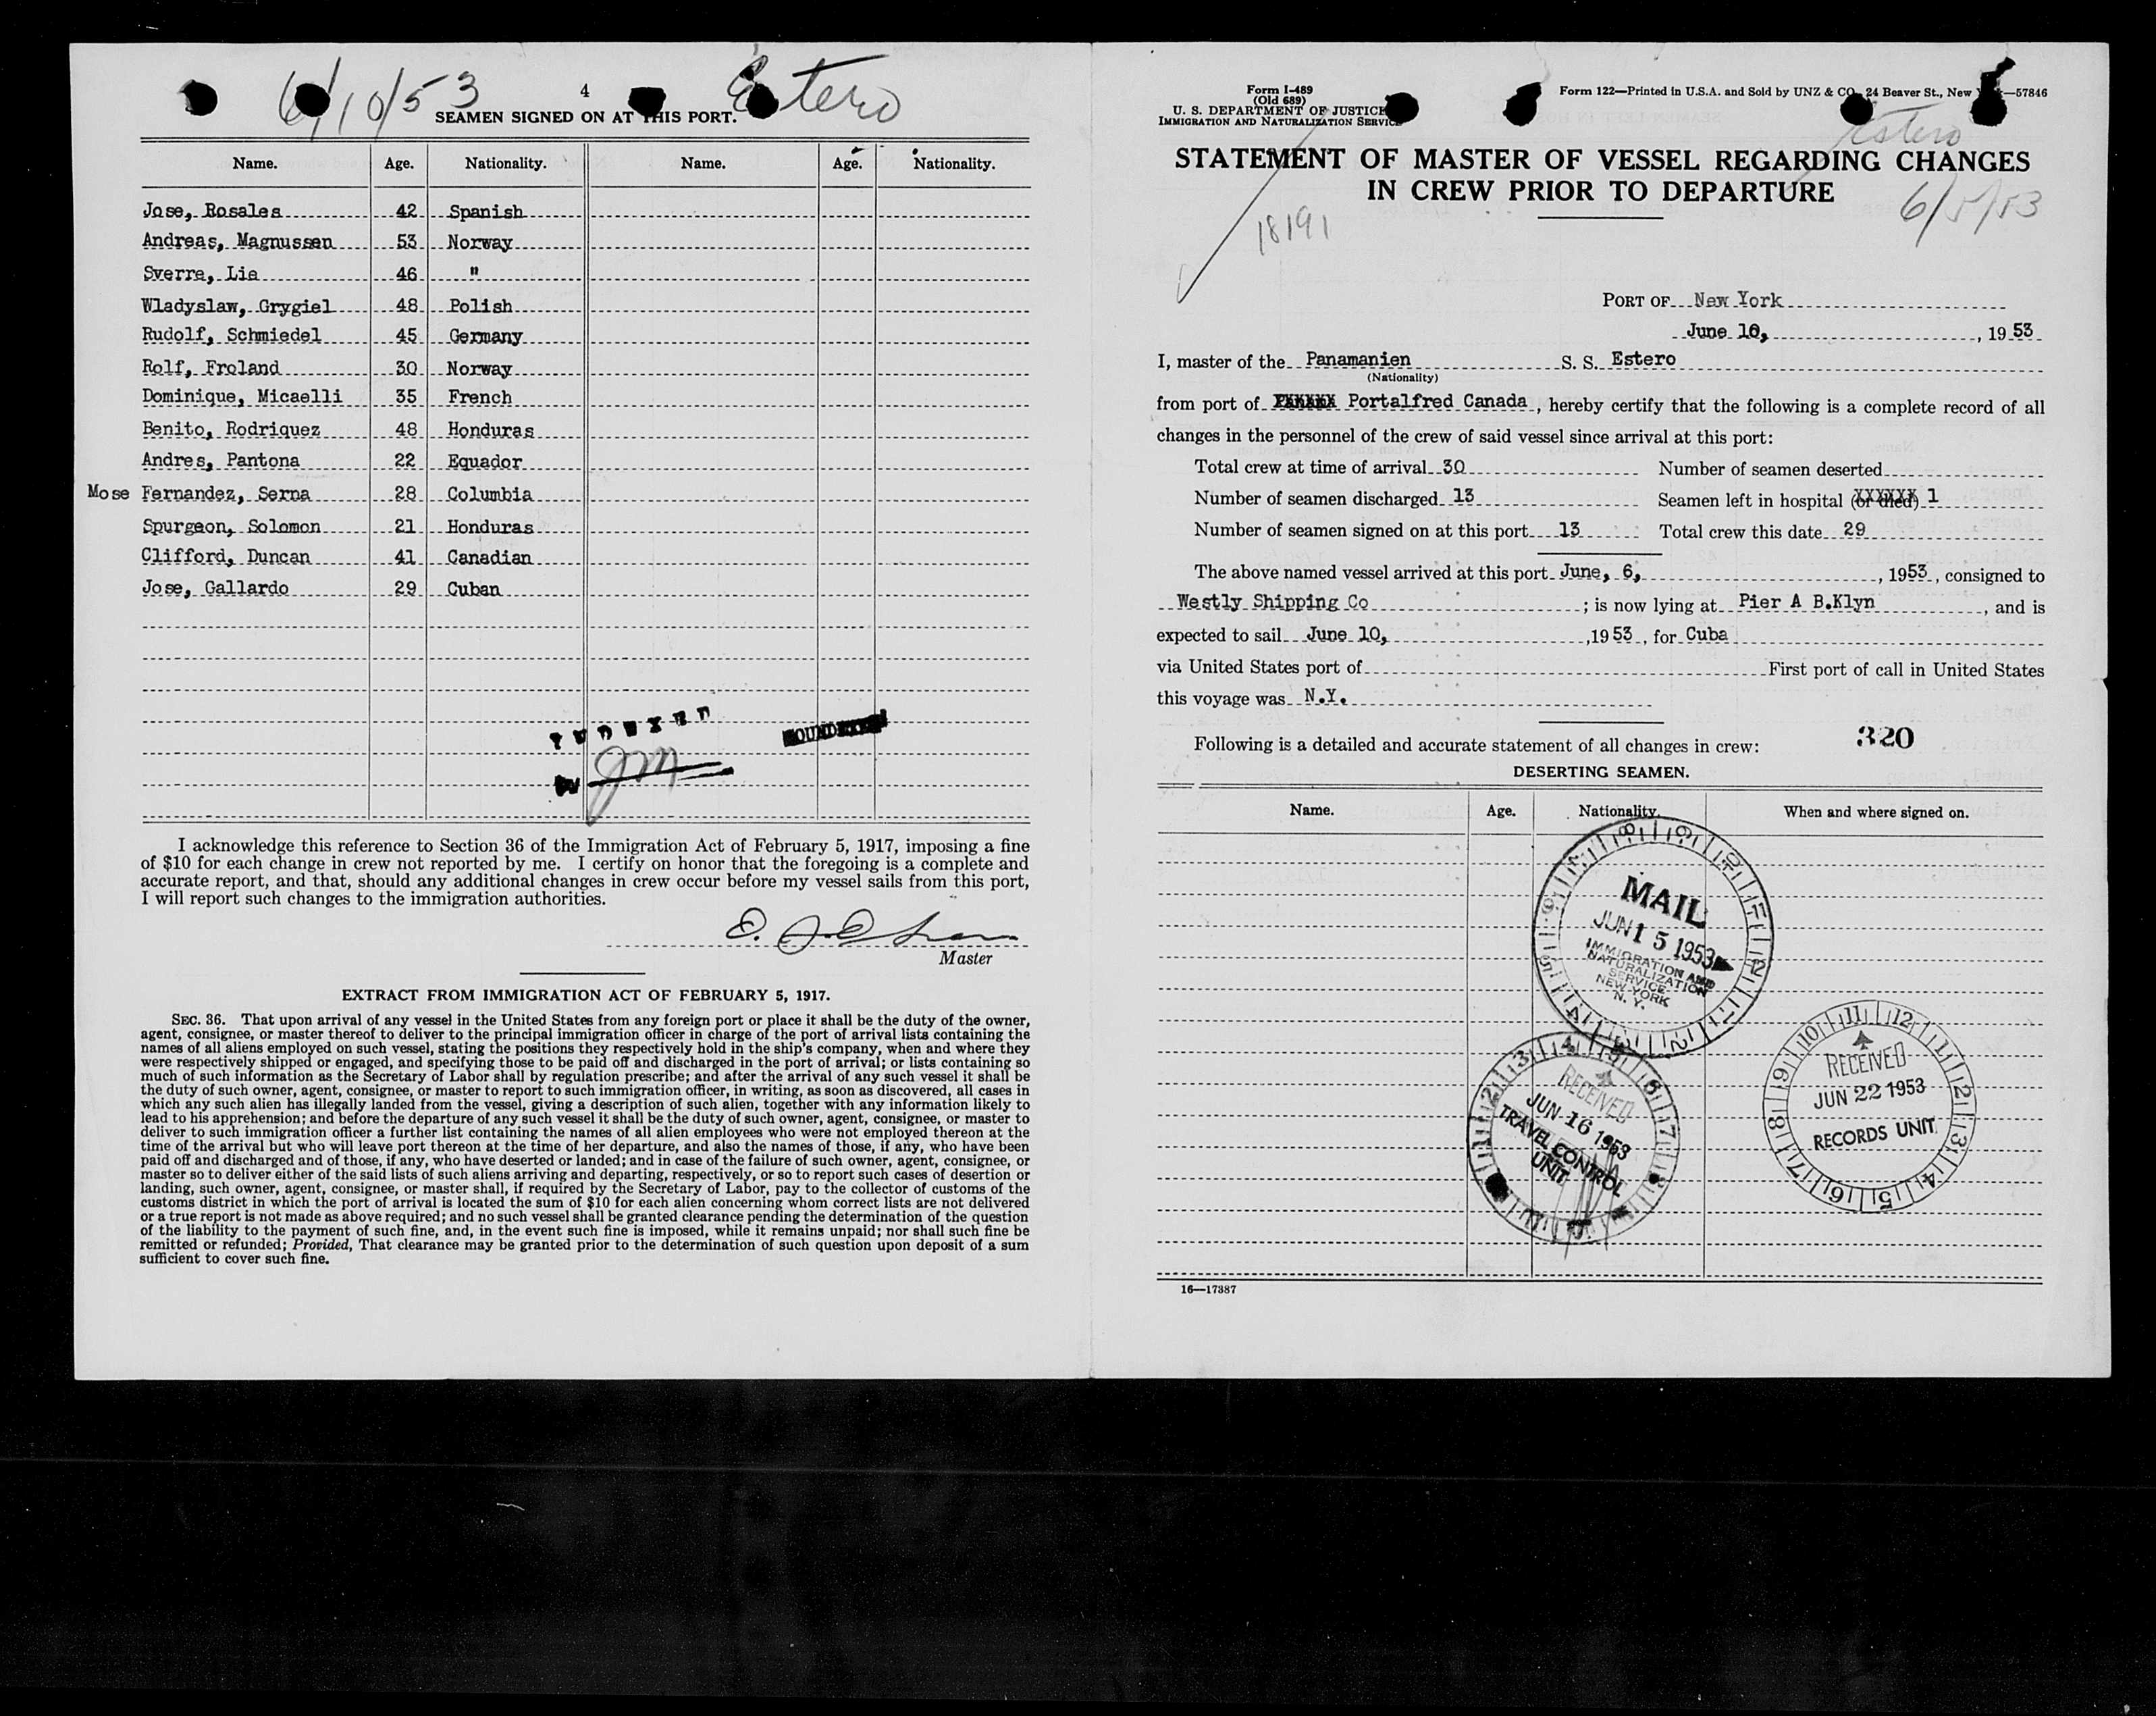 6/10/53 4 Estero
SEAMEN SIGNED ON AT THIS PORT.
Name. Age. Nationality. Name. Age. Nationality.
Jose, Rosales 42 Spanish
Andreas, Magnussen 53 Norway
Sverre, Lie 46 "
Wladyslaw, Grygiel 48 Polish
Rudolf, Schmiedel 45 Germany
Rolf, Froland 30 Norway
Dominique, Micaelli 35 French
Benito, Rodriquez 48 Honduras
Andres, Pantona 22 Equador
Mose Fernandez, Serna 28 Columbia
Spurgeon, Solomon 21 Honduras
Clifford, Duncan 41 Canadian
Jose, Gallardo 29 Cuban
INDEXED
BY JM
I acknowledge this reference to Section 36 of the Immigration Act of February 5, 1917, imposing a fine
of $10 for each change in crew not reported by me. I certify on honor that the foregoing is a complete and
accurate report, and that, should any additional changes in crew occur before my vessel sails from this port,
I will report such changes to the immigration authorities.
Master
EXTRACT FROM IMMIGRATION ACT OF FEBRUARY 5, 1917.
SEC. 36. That upon arrival of any vessel in the United States from any foreign port or place it shall be the duty of the owner,
agent, consignee, or master thereof to deliver to the principal immigration officer in charge of the port of arrival lists containing the
names of all aliens employed on such vessel, stating the positions they respectively hold in the ship's company, when and where they
were respectively shipped or engaged, and specifying those to be paid off and discharged in the port of arrival; or lists containing so
much of such information as the Secretary of Labor shall by regulation prescribe; and after the arrival of any such vessel it shall be
the duty of such owner, agent, consignee, or master to report to such immigration officer, in writing, as soon as discovered, all cases in
which any such alien has illegally landed from the vessel, giving a description of such alien, together with any information likely to
lead to his apprehension; and before the departure of any such vessel it shall be the duty of such owner, agent, consignee, or master to
deliver to such immigration officer a further list containing the names of all alien employees who were not employed thereon at the
time of the arrival but who will leave port thereon at the time of her departure, and also the names of those, if any, who have been
paid off and discharged and of those, if any, who have deserted or landed; and in case of the failure of such owner, agent, consignee, or
master so to deliver either of the said lists of such aliens arriving and departing, respectively, or so to report such cases of desertion or
landing, such owner, agent, consignee, or master shall, if required by the Secretary of Labor, pay to the collector of customs of the
customs district in which the port of arrival is located the sum of $10 for each alien concerning whom correct lists are not delivered
or a true report is not made as above required; and no such vessel shall be granted clearance pending the determination of the question
of the liability to the payment of such fine, and, in the event such fine is imposed, while it remains unpaid; nor shall such fine be
remitted or refunded; Provided, That clearance may be granted prior to the determination of such question upon deposit of a sum
sufficient to cover such fine.
Form I-489
(Old 689)
U. S. DEPARTMENT OF JUSTICE
IMMIGRATION AND NATURALIZATION SERVICE
Form 122—Printed in U.S.A. and Sold by UNZ & CO. 24 Beaver St., New —57846
Estero
STATEMENT OF MASTER OF VESSEL REGARDING CHANGES
IN CREW PRIOR TO DEPARTURE
6/5/53
18191
PORT OF New York
June 10, , 1953
I, master of the Panamanien S. S. Estero
(Nationality)
from port of Portalfred Canada, hereby certify that the following is a complete record of all
changes in the personnel of the crew of said vessel since arrival at this port:
Total crew at time of arrival 30 Number of seamen deserted
Number of seamen discharged 13 Seamen left in hospital (or died) 1
Number of seamen signed on at this port 13 Total crew this date 29
The above named vessel arrived at this port June, 6, , 1953, consigned to
Westly Shipping Co ; is now lying at Pier A B.Klyn , and is
expected to sail June 10, ,1953, for Cuba
via United States port of First port of call in United States
this voyage was N.Y.
Following is a detailed and accurate statement of all changes in crew: 320
DESERTING SEAMEN.
Name. Age. Nationality. When and where signed on.
MAIL
JUN 15 1953
IMMIGRATION AND
NATURALIZATION
SERVICE
NEW YORK
N. Y.
RECEIVED
JUN 16 1953
TRAVEL CONTROL
UNIT
RECEIVED
JUN 22 1953
RECORDS UNIT
16—17387